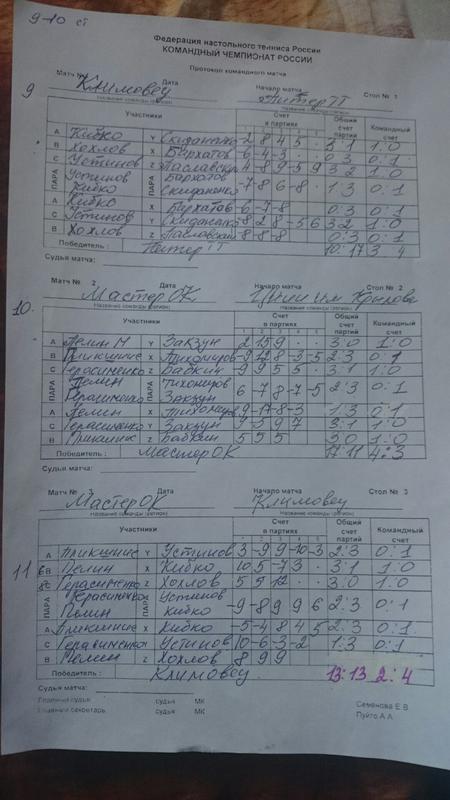 9-10 ст
Федерация настольного тенниса России
КОМАНДНЫЙ ЧЕМПИОНАТ РОССИИ
Протокол командного матча
9 Матч № Дата Начало матча Стол № 1
Климовец Питер ТТ
Название команды (регион) Название команды (регион)
Участники Счет в партиях Общий счет партий Командный счет
A Кибко Y 2 8 4 5 3 1 1:0
B Хохлов X Бурхатов -6 -4 -3 0 3 0:1
C Устинов Z 4 -8 9 -5 9 3 2 1:0
ПАРА Устинов Кибко ПАРА -7 8 -6 -8 1:3 0:1
A Кибко X -6 -7 -8 0:3 0:1
C Устинов Y -8 2 8 -5 6 3:2 1:0
B Хохлов Z -8 -8 -8 0:3 0:1
Победитель : Питер ТТ 10:17 3 4
Судья матча:
10. Матч № Дата Начало матча Стол № 2
Мастер ОК ЦНИИ им Крылова
Название команды (регион) Название команды (регион)
Участники Счет в партиях Общий счет партий Командный счет
A Пелин М Y Закзун 2 15 9 3:0 1:0
B X Тихомиров 2:3 0:1
C Герасименко Z Бабкин -9 9 5 5 3:1 1:0
ПАРА Пелин Герасименко ПАРА Тихомиров Закзун 6 -7 8 -7 -5 2:3 0:1
A Пелин X Тихомиров -9 -17 8 -3 1:3 0:1
C Герасименко Y Закзун 3:1 1:0
B Z Бабкин 5 5 5 3:0 1:0
Победитель : Мастер ОК 17:11 4:3
Судья матча:
11 Матч № Дата Начало матча Стол № 3
Мастер ОК Климовец
Название команды (регион) Название команды (регион)
Участники Счет в партиях Общий счет партий Командный счет
A Y Устинов 3 -9 9 -10 -3 2:3 0:1
B Пелин X Кибко 10 5 -7 3 3:1 1:0
C Герасименко Z Хохлов 5 5 12 3:0 1:0
ПАРА Герасименко Пелин ПАРА Устинов Кибко -9 -8 9 9 6 2:3 0:1
A X Кибко -5 -4 8 4 5 2:3 0:1
C Герасименко Y Устинов 10 -6 -3 -2 1:3 0:1
B Пелин Z Хохлов 8 9 9
Победитель : Климовец 13:13 2:4
Судья матча:
Главный судья судья МК Семенова Е.В
Главный секретарь судья МК Пуйто А.А